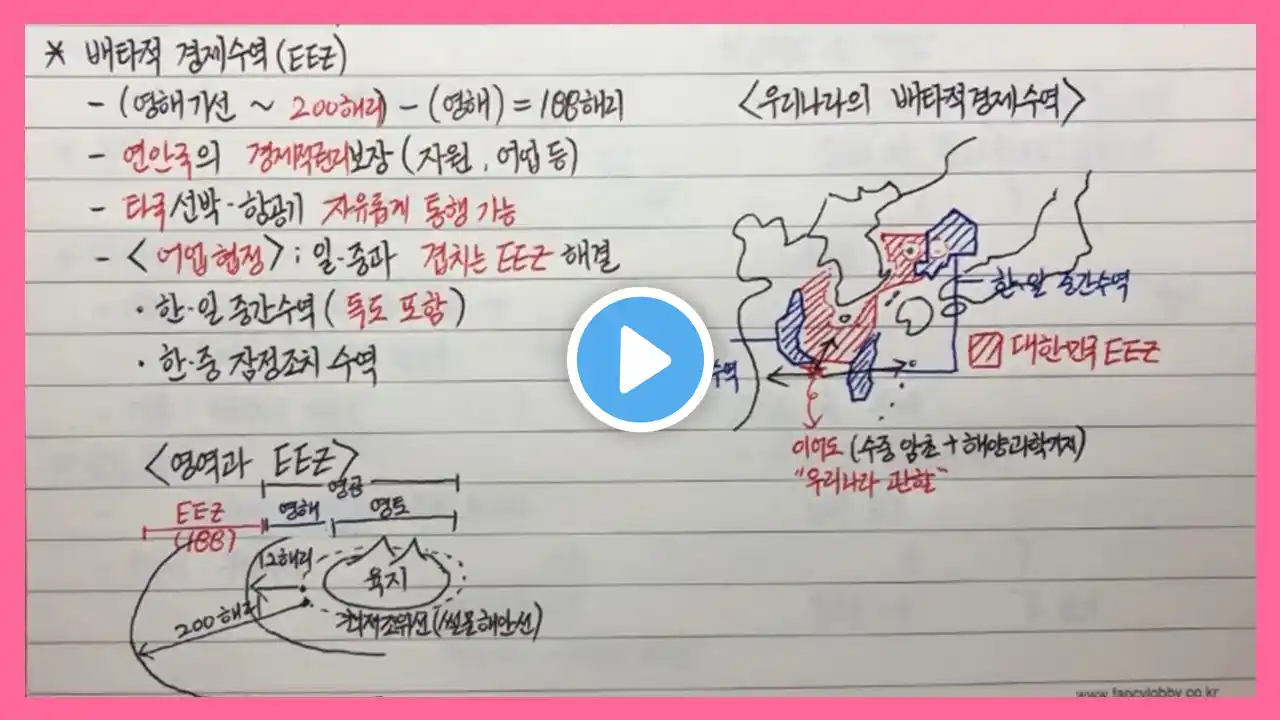 * 배타적 경제수역 (EEZ)
- (영해기선 ~ 200해리) - (영해) = 188해리
- 연안국의 경제적권리보장 (자원, 어업 등)
- 타국 선박·항공기 자유롭게 통행 가능
- <어업협정> : 일·중과 겹치는 EEZ 해결
· 한·일 중간수역 (독도 포함)
· 한·중 잠정조치 수역
<우리나라의 배타적경제수역>
한·일 중간수역
대한민국 EEZ
수역
이어도 (수중 암초 + 해양과학기지)
"우리나라 관할"
<영역과 EEZ>
영공
EEZ 영해 영토
(188)
12해리
육지
200해리
최저조위선 (썰물해안선)
www.fancylobby.co.kr